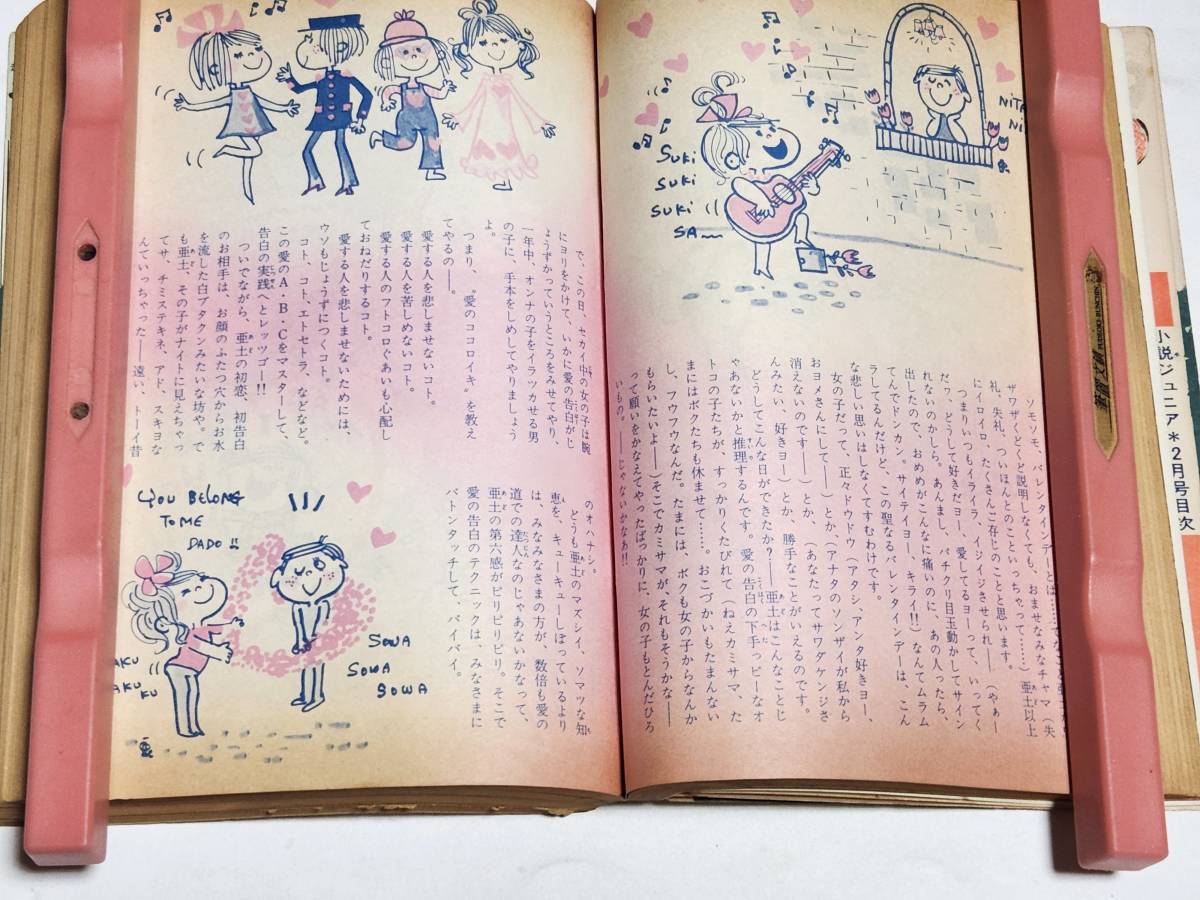 SUKI
SUKI
SUKI
SA
NITA
NI
ソモソモ、バレンタインデーとは
ザワザくどくど説明しなくても、おませなみなチャマ（失
礼、失礼、ついほんとのこといっちゃって……）亜土以上
にイロイロ、たくさんご存じのことと思います。
つまりいつもイライラ、イジイジさせられ――（やぁー
だヮ、どうして好きだヨー、愛してるヨーって、いってく
れないのかしら。あんまし、パチクリ目玉動かしてサイン
出したので、おめめがこんなに痛いのに、あの人ったら、
てんでドンカン。サイテイヨー、キライ!!）なんてムラム
ラしてるんだけど、この聖なるバレンタインデーは、こん
な悲しい思いはしなくてすむわけです。
女の子だって、正々ドウドウ（アタシ、アンタ好きヨー、
おヨメさんにして――）とか、（アナタのソンザイが私から
消えないのです――）とか、（あなたってサワダケンジさ
んみたい、好きヨー）とか、勝手なことがいえるのです。
どうしてこんな日ができたか？――亜土はこんなことじ
ゃあないかと推理するんです。愛の告白の下手っピーなオ
トコの子たちが、すっかりくたびれて（ねえカミサマ、た
まにはボクたちも休ませて……。おこづかいもたまんない
し、フウフウなんだ。たまには、ボクも女の子からなんか
もらいたいよ――）そこでカミサマが、それもそうかな――
って願いをかなえてやったばっかりに、女の子もとんだひろ
いもの。――じゃないかなぁ!!
で、この日、セカイ中の女の子は腕
にヨリをかけて、いかに愛の告白がじ
ょうずかっていうところをみせてやり、
一年中、オンナの子をイラつかせる男
の子に、手本をしめしてやりましょう
よ。
つまり、“愛のココロイキ”を教え
てやるの――。
愛する人を悲しませないコト。
愛する人を苦しめないコト。
愛する人のフトコロぐあいも心配し
ておねだりするコト。
愛する人を悲しませないためには、
ウソもじょうずにつくコト。
コト、コト、エトセトラ、などなど。
この愛のA・B・Cをマスターして、
告白の実践へとレッツゴー!!
ついでながら、亜土の初恋、初告白
のお相手は、お顔のふたつ穴からお水
を流した白ブタクンみたいな坊や。で
も亜土、その子がナイトに見えちゃっ
てサ、チミステキネ、アド、スキヨな
んていっちゃった――遠い、トーイ昔
のオハナシ。
どうも亜土のマズシイ、ソマツな知
恵を、キューキューしぼっているより
は、みなみなさまの方が、数倍も愛の
道での達人なのじゃあないかなって、
亜土の第六感がピリピリピリ。そこで
愛の告白のテクニックは、みなさまに
バトンタッチして、バイバイ。
YOU BELONG
TO ME
DADO!!
AKU
AKU
KU
SOWA
SOWA
SOWA
小説ジュニア＊2月号目次